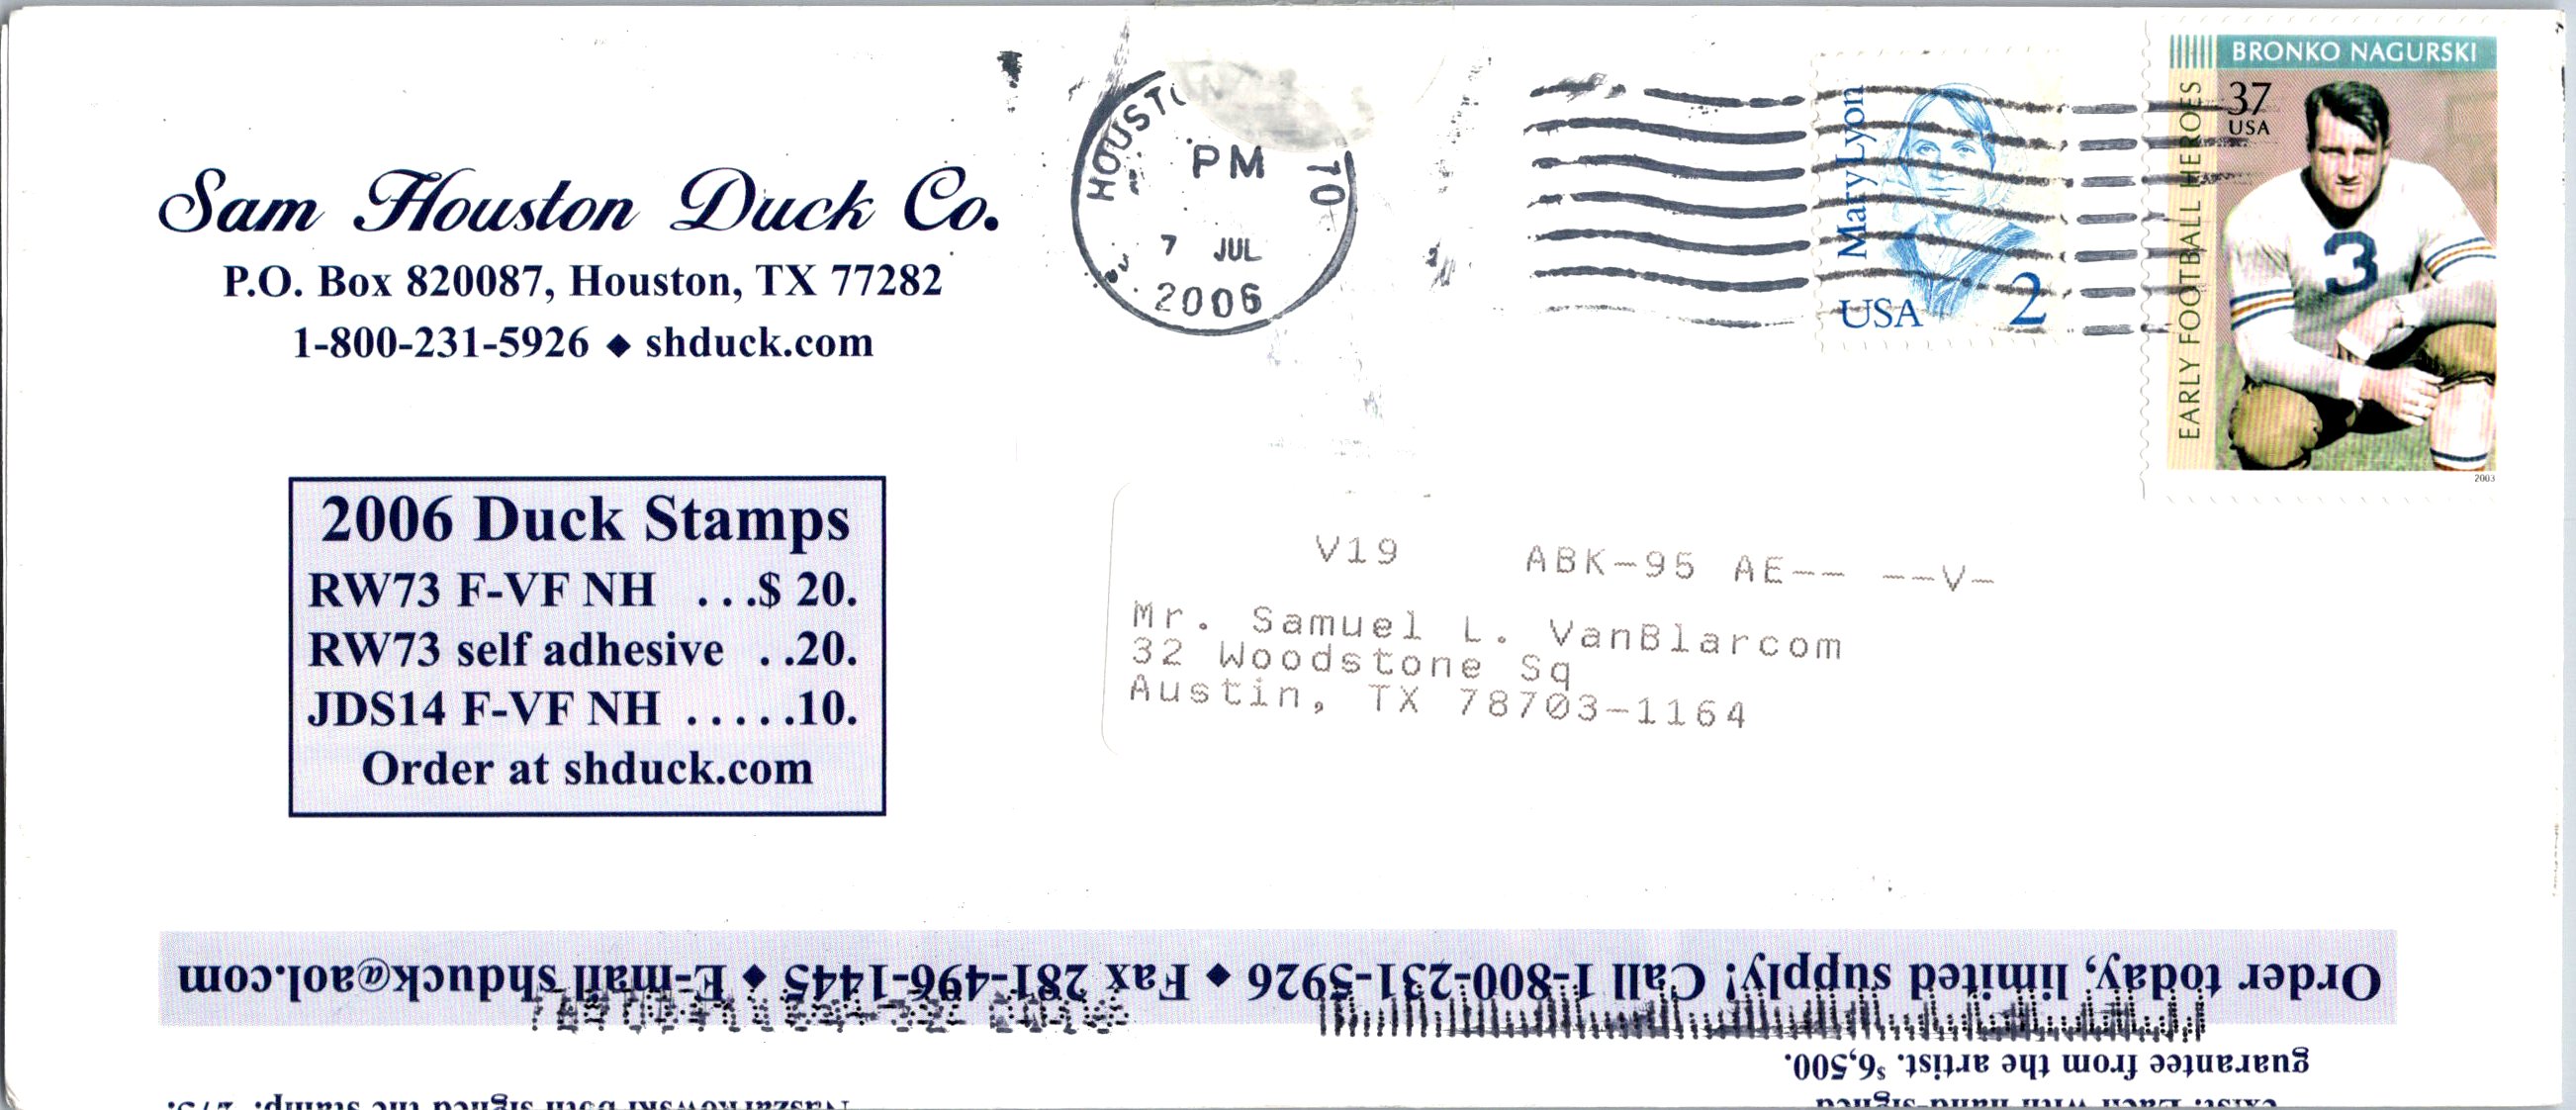 Sam Houston Duck Co.
P.O. Box 820087, Houston, TX 77282
1-800-231-5926 ◆ shduck.com
HOUSTO
TO
PM
7 JUL
2006
Mary Lyon
USA 2
BRONKO NAGURSKI
37
USA
EARLY FOOTBALL HEROES
3
2003
2006 Duck Stamps
RW73 F-VF NH ...$ 20.
RW73 self adhesive ..20.
JDS14 F-VF NH .....10.
Order at shduck.com
V19 ABK-95 AE-- --V-
Mr. Samuel L. VanBlarcom
32 Woodstone Sq
Austin, TX 78703-1164
Order today, limited supply! Call 1-800-231-5926 ◆ Fax 281-496-1445 ◆ E-mail shduck@aol.com
guarantee from the artist. $6,500.
exist. Each with hand-signed
both signed the stamp. 275.